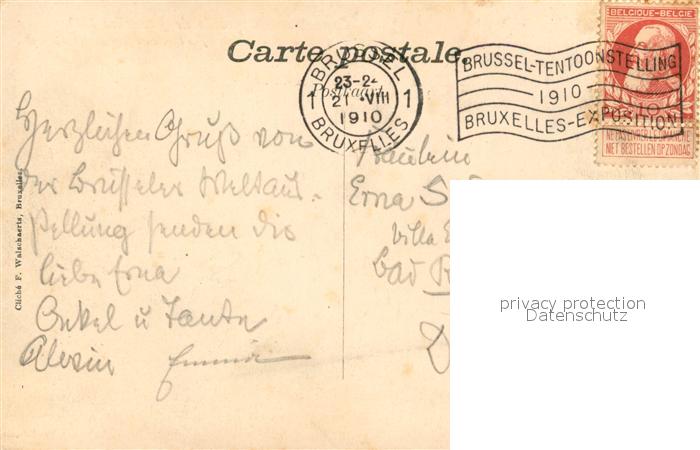 Carte postale.
Postkaart
BRUSSEL
23-24
1 21 VIII 1
1910
BRUXELLES
BRUSSEL-TENTOONSTELLING
1910
BRUXELLES-EXPOSITION
BELGIQUE-BELGIE
NE PAS LIVRER LE DIMANCHE
NIET BESTELLEN OP ZONDAG
Herzlichen Gruß von
der Brüsseler Weltaus-
stellung senden dir
liebe Erna
Onkel u Tante
Fräulein
Erna
Villa
Bad
Cliché F. Walschaerts, Bruxelles.
privacy protection
Datenschutz